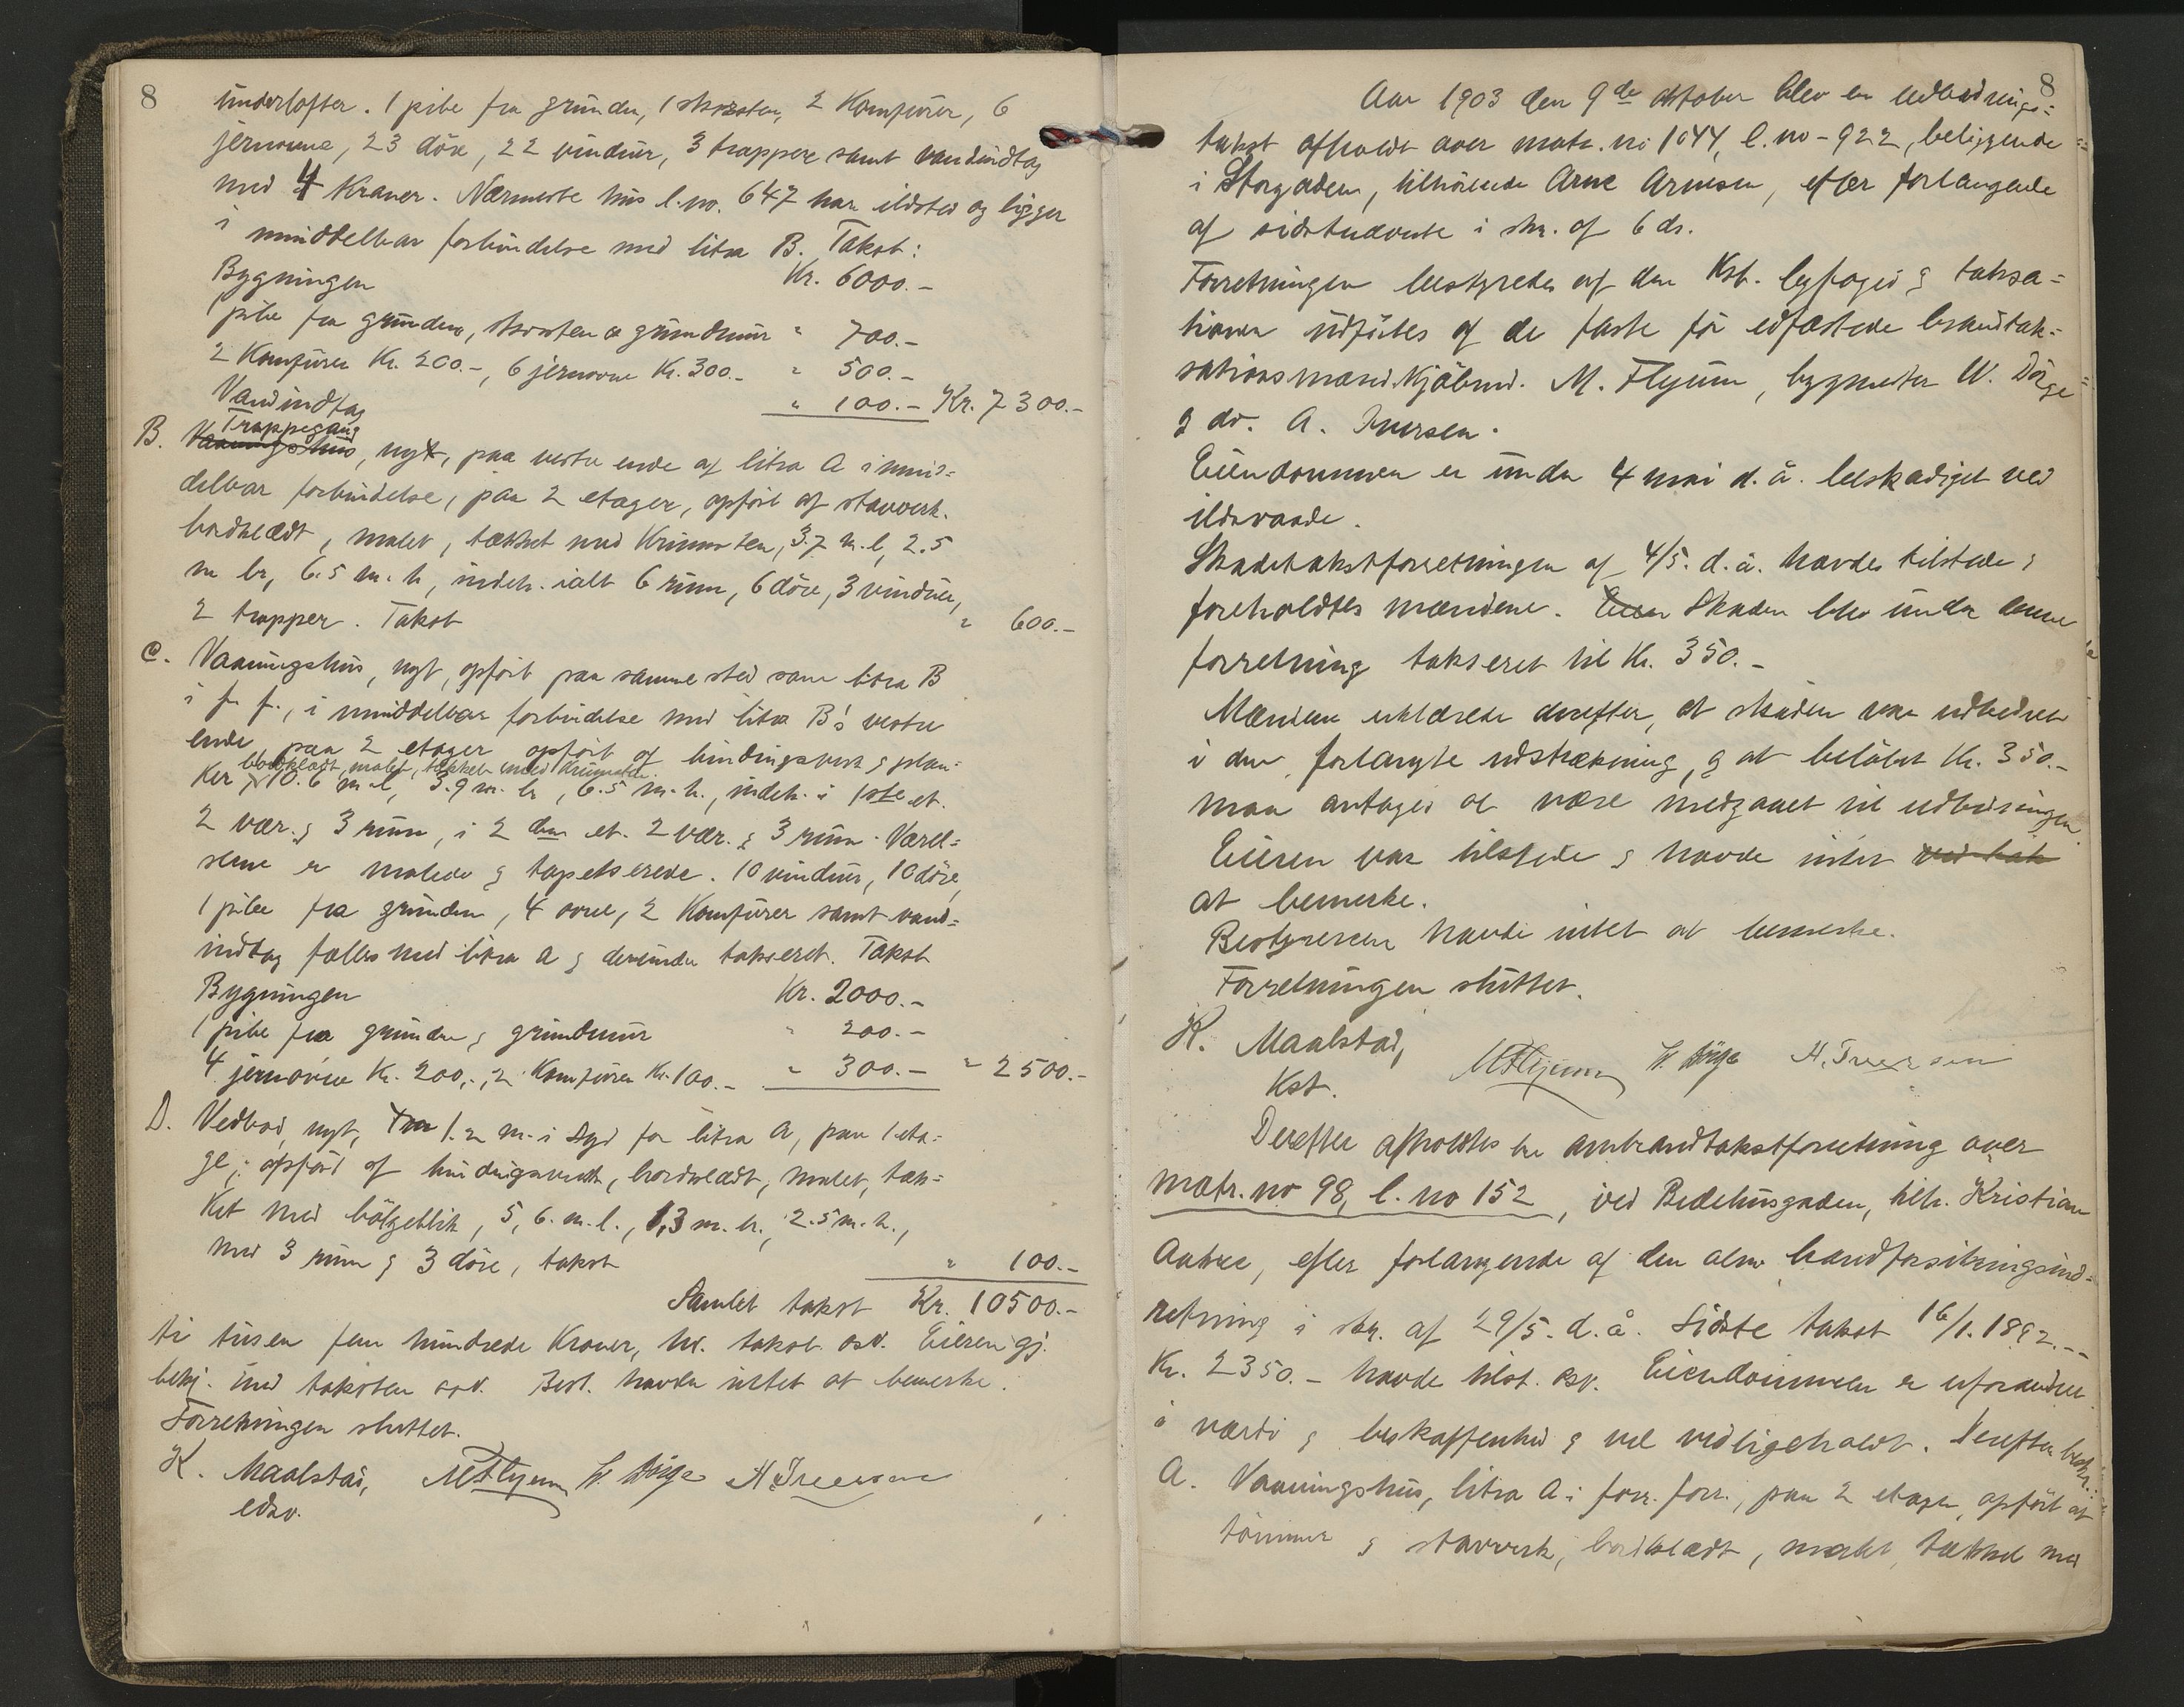 8
underlofter. 1 pibe fra grunden, 1 skorsten, 2 Komfurer, 6
jernovne, 23 döre, 22 vinduer, 3 trapper samt vandindtag
med 4 Kraner. Nærmeste hus l.no. 647 har ildsted og ligger
i umiddelbar forbindelse med litra B. Takst:
Bygningen Kr. 6000.-
1 pibe fra grunden, skorsten & grundmur " 700.-
2 Komfurer Kr. 200.-, 6 jernovne Kr. 300.- " 500.-
Vandindtag " 100.- Kr. 7300.-
Trappegang
B. Vaaningshus, nyt, paa vestre ende af litra A i umid-
delbar forbindelse, paa 2 etager, opfört af stavverk.
bordklædt, malet, tækket med Krumsten, 3.7 m. l, 2.5
m br, 6.5 m. h, indeh. ialt 6 rum, 6 döre, 3 vinduer,
2 trapper. Takst " 600.-
C. Vaaningshus, nyt, opfört paa samme sted som litra B
i f. f., i umiddelbar forbindelse med litra B's vestre
ende paa 2 etager opfört af bindingsverk & plan-
bordklædt, malet, tækket med Krumsten.
ker, 10.6 m. l, 3.9 m. br, 6.5 m. h., indeh. i 1ste et.
2 vær. & 3 rum, i 2den et. 2 vær. & 3 rum. Værel-
serne er malede & tapetserede. 10 vinduer, 10 döre,
1 pibe fra grunden, 4 ovne, 2 Komfurer samt vand-
indtag fælles med litra A & derunder takseret. Takst
Bygningen Kr. 2000.-
1 pibe fra grunden & grundmur " 200.-
4 jernovne Kr. 200.-, 2 Komfurer Kr. 100.- " 300.- " 2500.-
D. Vedbod, nyt, 1.2 m. i syd for litra A, paa 1 eta-
ge, opfört af bindingsverk, bordklædt, malet, tæk-
ket med bölgeblik, 5,6. m. l., 1,3 m. br., 2.5 m. h.,
med 3 rum & 3 döre, takst " 100.-
Samlet takst Kr. 10500.-
ti tusen fem hundrede Kroner, hv. takst osv. Eieren gj.
bekj. med taksten osv. Best. havde intet at bemerke.
Forretningen sluttet.
K. Maalstad, M Flyum W. Dörge A. Iversen
edsv.
8
Aar 1903 den 9de oktober blev en udbedrings-
takst afholdt over matr. no 1044, l. no - 922, beliggende
i Storgaden, tilhörende Arne Arnesen, efter forlangende
af sidstnævnte i skr. af 6 ds.
Forretningen bestyredes af den Kst. byfoged & taksa-
tionen udförtes af de faste för edfæstede brandtak-
sationsmænd Kjöbmd. M. Flyum, bygmester W. Dörge
& do. A. Iversen.
Eiendommen er under 4 mai d. å. beskadiget ved
ildsvaade.
Skadetakstforretningen af 4/5. d. å. havdes tilstede &
foreholdtes mændene. Skaden blev under denne
forretning takseret til Kr. 350.-
Mændene erklærede derefter, at skaden var udbedret
i den forlangte udstrækning, & at belöbet Kr. 350.-
maa antages at være medgaaet til udbedringen.
Eieren var tilstede & havde intet ved tak
at bemerke.
Bestyreren havde intet at bemerke.
Forretningen sluttet.
K. Maalstad, M Flyum W. Dörge A. Iversen
Kst.
Derefter afholdtes en ombrandtakstforretning over
matr. no 98, l. no 152, ved Bedehusgaden, tilh. Kristian
efter forlangende af den alm. brandforsikringsind-
retning i skr. af 29/5. d. å. Sidste takst 16/1. 1892.--
Kr. 2350.- havde tilst. osv. Eiendommen er uforandret
i værdi & beskaffenhed & vel vedligeholdt. Derefter beskr.:
A. Vaaningshus, litra A i forr. forr., paa 2 etager, opfört af
tömmer & stavverk, bordklædt, malet, tækket med